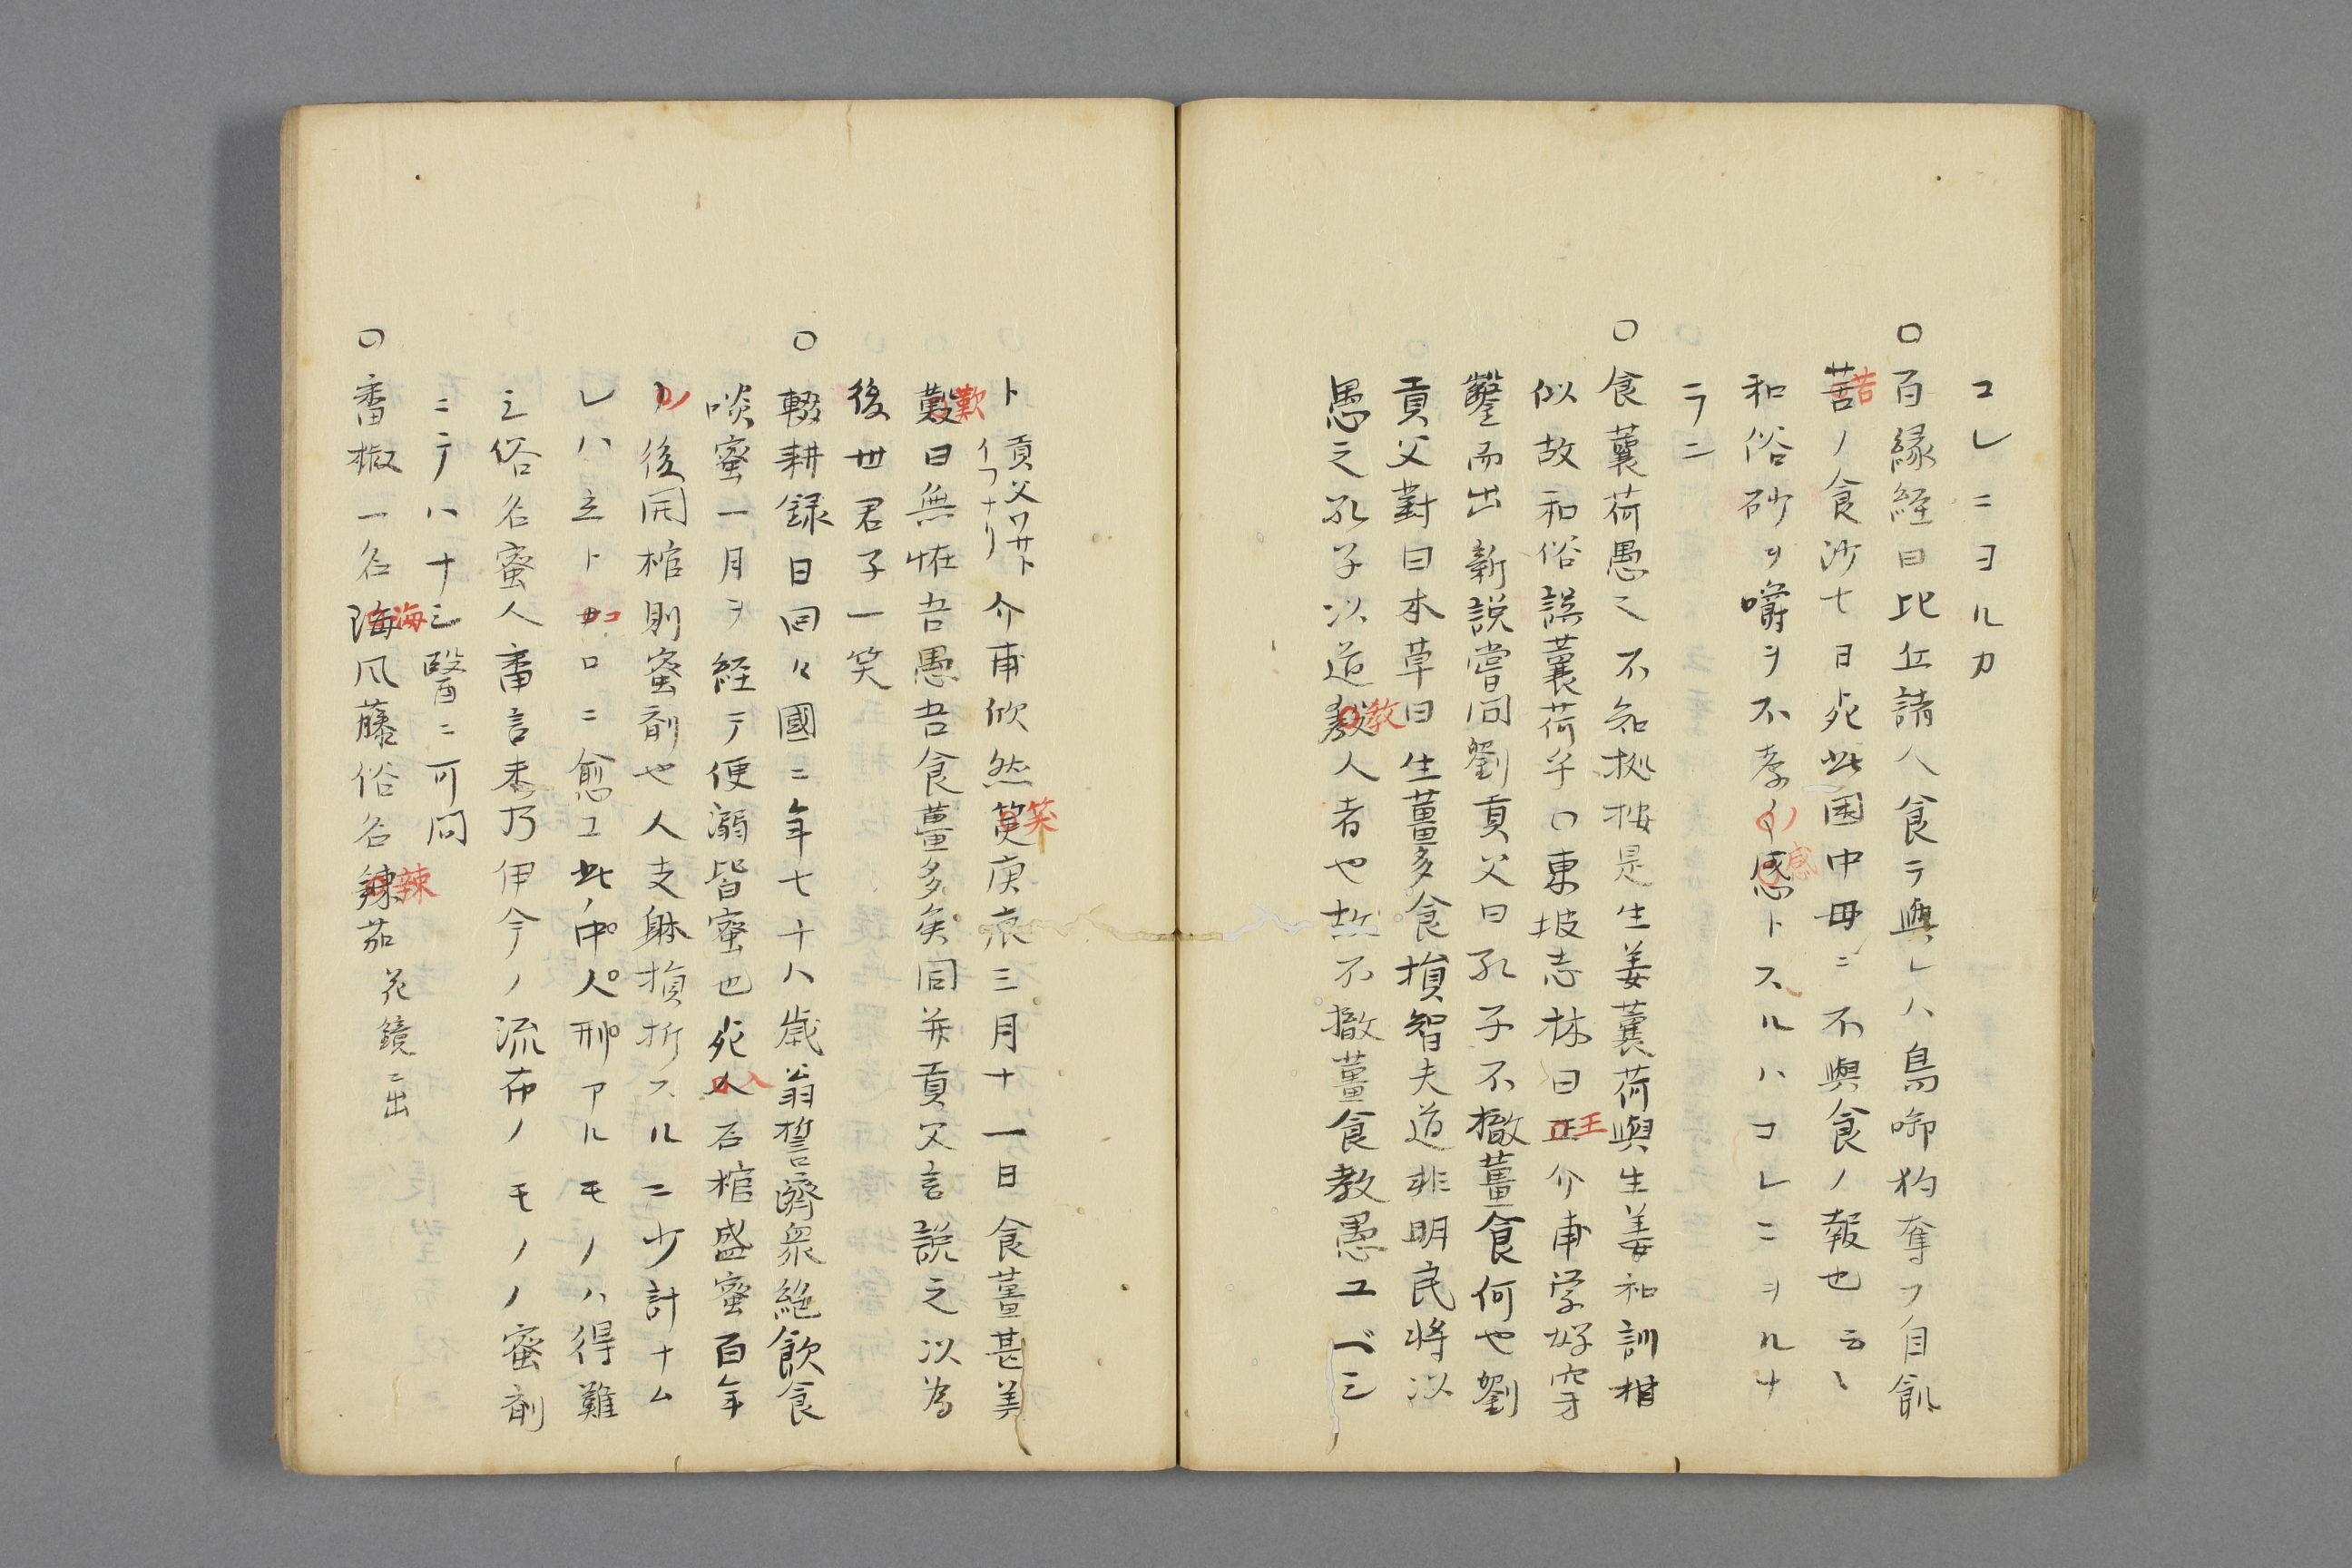 コレニヨルカ
○百縁経曰比丘請人食テ與レハ鳥啣狗奪フ自飢
苦ノ食沙七日死此困中毋ニ不與食ノ報也云〻
苦
和俗砂ヲ嚼ヲ不孝ノ感トスルハコレニヨルナ
感
ラニ
○食蘘荷愚之不知拠按是生姜蘘荷與生姜和訓相
似故和俗誤蘘荷乎○東坡志林曰王介甫学好穿
王
鑿而出新説嘗同劉貢父曰孔子不撤薑食何也劉
貢父對曰本草曰生薑多食損智夫道非明民將以
愚之孔子以道教人者也故不撤薑食教愚ユベシ
教
ト貢父ワサトイフナリ介甫欣然笑庚辰三月十一日食薑甚美
笑
歎曰無怪吾愚吾食薑多矣同并貢父言説之以為
歎
後世君子一笑
○輟耕録曰回々國ニ年七十八歳翁誓濟衆絶飲食
啖蜜一月ヲ経テ便溺皆蜜也死人石棺盛蜜百年
入
ノ後開棺則蜜剤也人支躰損折スルニ少計ナム
レハ立トコロニ愈ユ此中人形アルモノハ得難
コ
シ俗名蜜人畨言木乃伊今ノ流布ノモノノ蜜剤
ニテハナシ醫ニ可問
○畨椒一名海风藤俗名辣茄 花鏡ニ出
海
辣